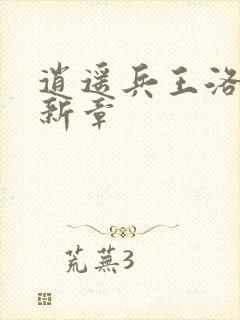 逍遥兵王洛
新章
荒蕪3